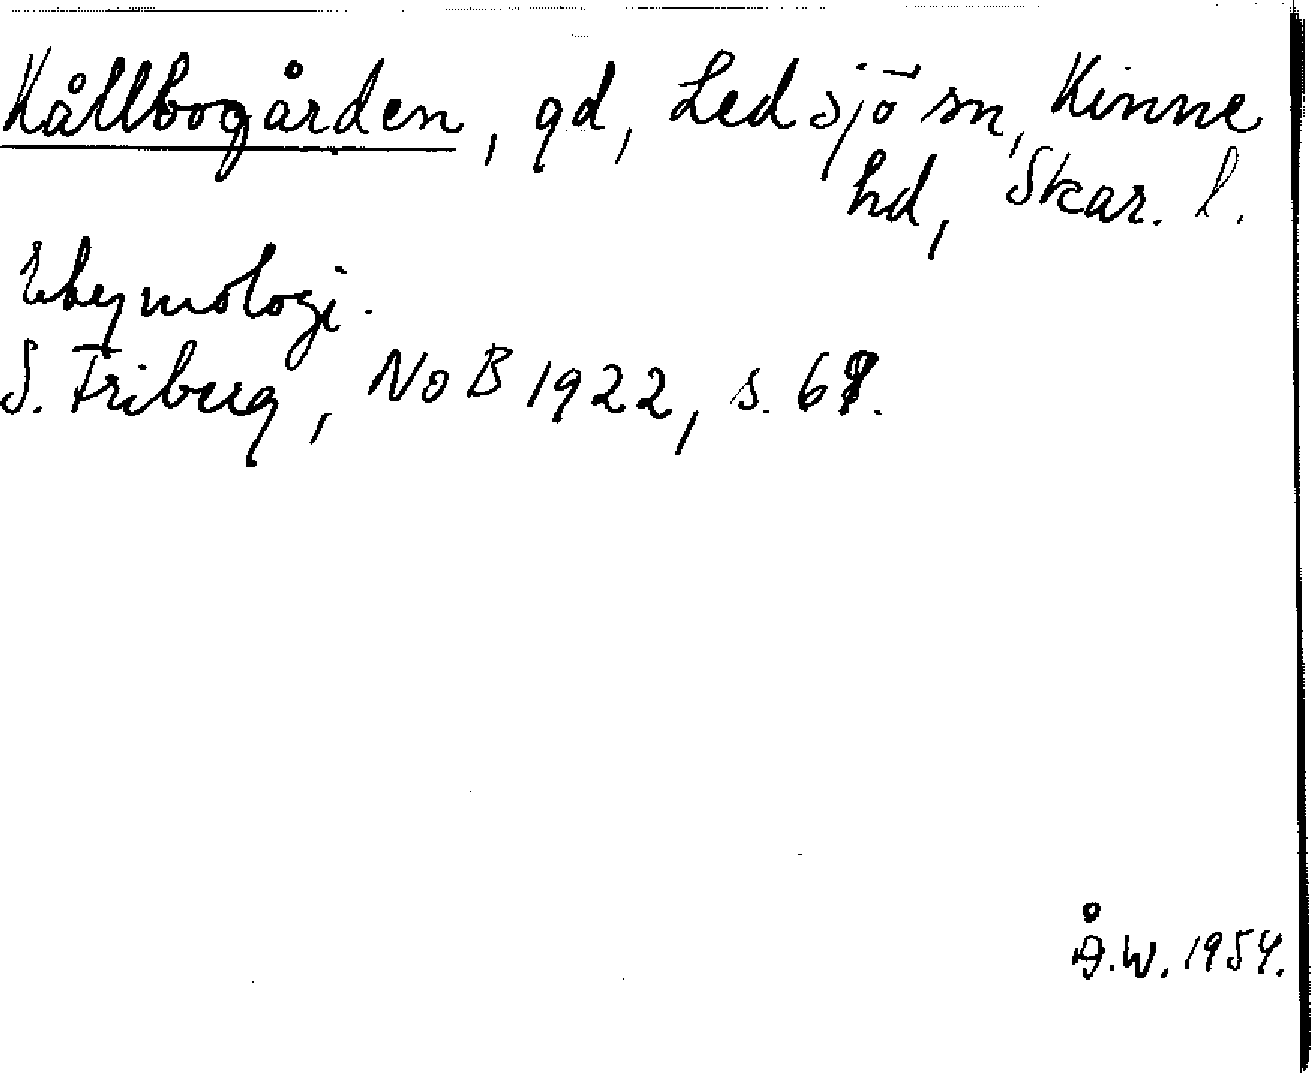 Kållbogården, gd, Ledsjö sn, Kinne
hd, Skar. l.
Etymologi.
S. Friberg, NoB 1922, s.
Å.W. 1954.